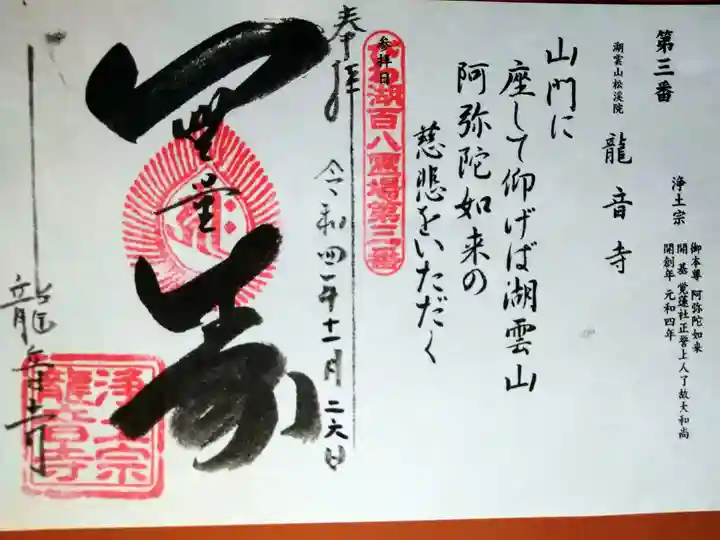 第三番
潮雲山松渓院 龍音寺
浄土宗
御本尊 阿弥陀如来
開基 覚蓮社正誉上人了故大和尚
開創年 元和四年
山門に
座して仰げば湖雲山
阿弥陀如来の
慈悲をいただく
参拝日
湖百八霊場第三番
奉拝
令和四年十一月二六日
無量寿
龍音寺
浄土宗
龍音寺